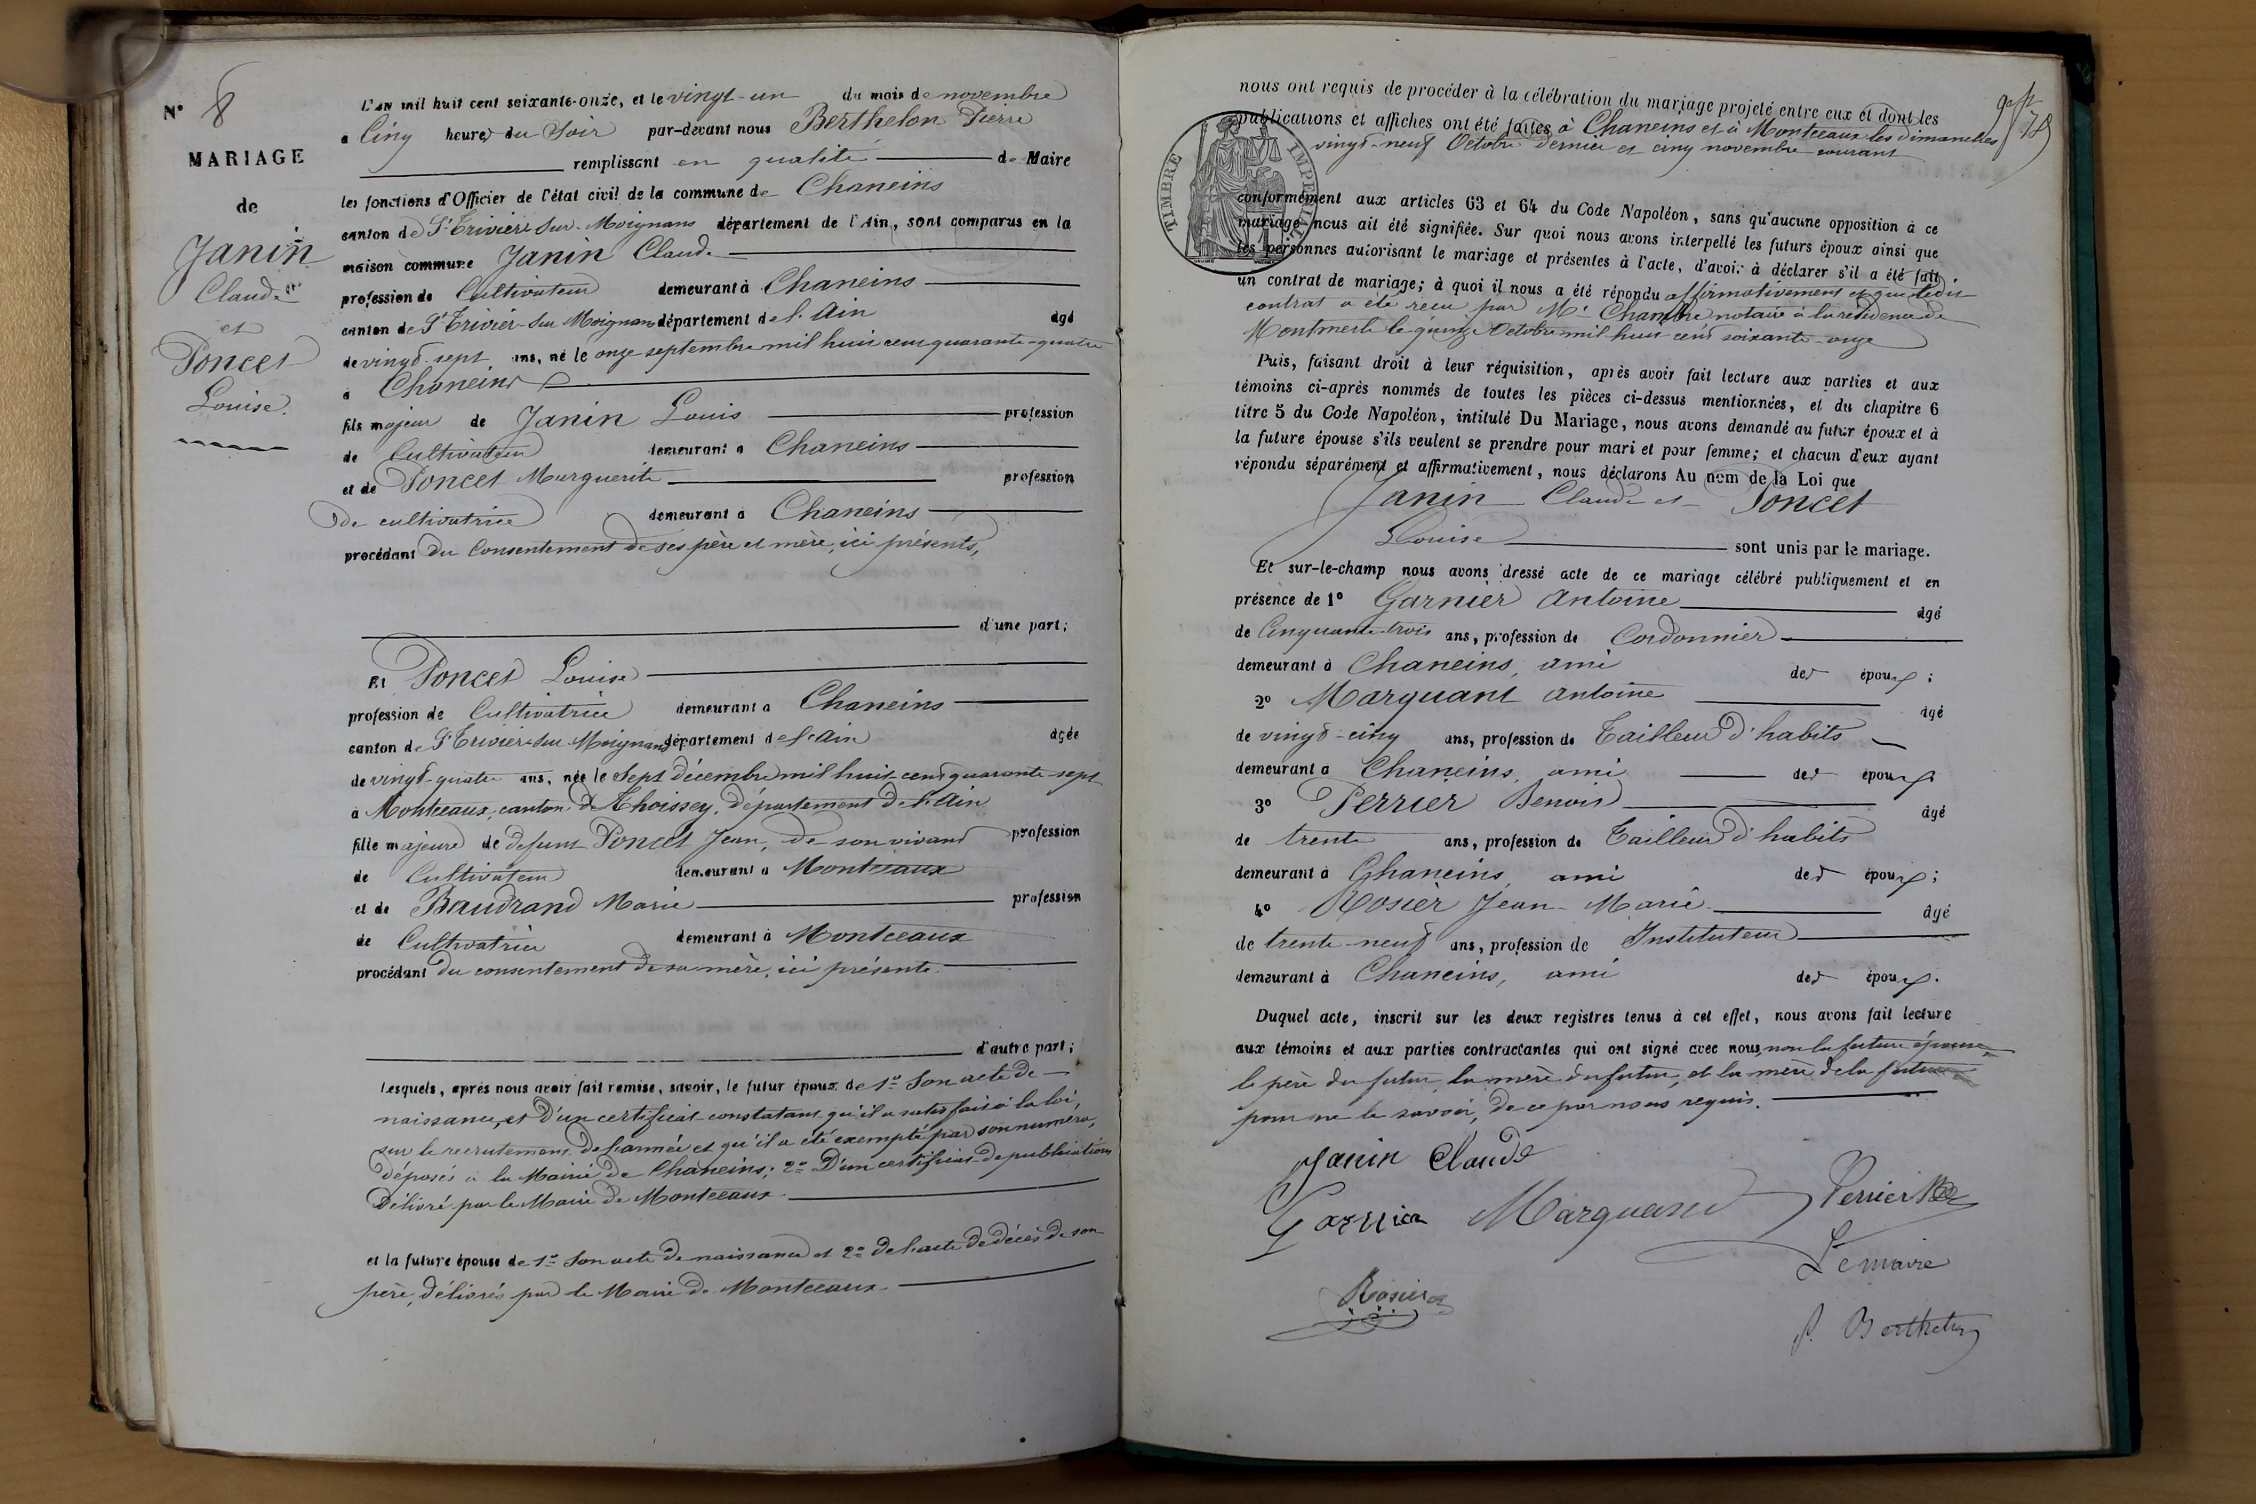 N° 8
MARIAGE
de
Janin
Claude
et
Poncet
Louise.
L'an mil huit cent soixante-onze, et le vingt-un du mois de novembre
a Cinq heures du Soir par-devant nous Berthelon Pierre
remplissant en qualité de Maire
les fonctions d'Officier de l'état civil de la commune de Chaneins
canton de St Trivier-sur-Moignans département de l'Ain, sont comparus en la
maison commune Janin Claude
profession de Cultivateur demeurant à Chaneins
canton de St Trivier-sur Moignans département de l'Ain âgé
de vingt-sept ans, né le onze septembre mil huit cent quarante-quatre
à Chaneins
fils majeur de Janin Louis profession
de Cultivateur demeurant a Chaneins
et de Poncet Marguerite profession
de cultivatrice demeurant a Chaneins
procédant du Consentement de ses père et mère, ici présents,
d'une part;
Et Poncet Louise
profession de Cultivatrice demeurant a Chaneins
canton de St Trivier-sur-Moignans département de l'Ain âgée
de vingt-quatre ans, née le Sept décembre mil huit cent quarante-sept
à Montceaux, canton de Thoissey, département de l'Ain
fille majeure de defunt Poncet Jean, de son vivant profession
de Cultivateur demeurant a Montceaux
et de Baudrand Marie profession
de Cultivatrice demeurant à Montceaux
procédant du consentement de sa mère, ici présente
d'autre part;
Lesquels, après nous avoir fait remise, savoir, le futur époux de 1° Son acte de
naissance, et d'un certificat constatant qu'il a satisfait à la loi,
sur le recrutement de l'armée et qu'il a été exempté par son numéro,
déposés à la Mairie de Chaneins; 2° D'un certificat de publications
Délivré par le Maire de Montceaux
et la future épouse de 1° Son acte de naissance et 2° de l'acte de décès de son
père, délivrés par le Maire de Montceaux
nous ont requis de procéder à la célébration du mariage projeté entre eux et dont les
publications et affiches ont été faites à Chaneins et à Montceaux les dimanches
vingt-neuf Octobre dernier et cinq novembre courant
TIMBRE IMPERIAL
conformément aux articles 63 et 64 du Code Napoléon, sans qu'aucune opposition à ce
mariage nous ait été signifiée. Sur quoi nous avons interpellé les futurs époux ainsi que
les personnes autorisant le mariage et présentes à l'acte, d'avoir à déclarer s'il a été fait
un contrat de mariage; à quoi il nous a été répondu affirmativement et que ledit
contrat a été reçu par Me Chambre notaire à la résidence de
Montmerle le quinze Octobre mil huit cent soixante-onze
Puis, faisant droit à leur réquisition, après avoir fait lecture aux parties et aux
témoins ci-après nommés de toutes les pièces ci-dessus mentionnées, et du chapitre 6
titre 5 du Code Napoléon, intitulé Du Mariage, nous avons demandé au futur époux et à
la future épouse s'ils veulent se prendre pour mari et pour femme; et chacun d'eux ayant
répondu séparément et affirmativement, nous déclarons Au nom de la Loi que
Janin Claude et Poncet
Louise sont unis par le mariage.
Et sur-le-champ nous avons dressé acte de ce mariage célébré publiquement et en
présence de 1° Garnier Antoine âgé
de Cinquante-trois ans, profession de Cordonnier
demeurant à Chaneins, ami des époux;
2° Marquant Antoine âgé
de vingt-cinq ans, profession de Tailleur d'habits
demeurant a Chaneins, ami des époux
3° Perrier Benoit âgé
de trente ans, profession de Tailleur d'habits
demeurant à Chaneins, ami des époux;
4° Rosier Jean-Marie âgé
de trente-neuf ans, profession de Instituteur
demeurant à Chaneins, ami des époux.
Duquel acte, inscrit sur les deux registres tenus à cet effet, nous avons fait lecture
aux témoins et aux parties contractantes qui ont signé avec nous, non la future épouse,
le père du futur, la mère du futur, et la mère de la future
pour ne le savoir, de ce par nous requis.
Janin Claude
Garnier Marquand Perrier
Le maire
Rosier
P. Berthelon